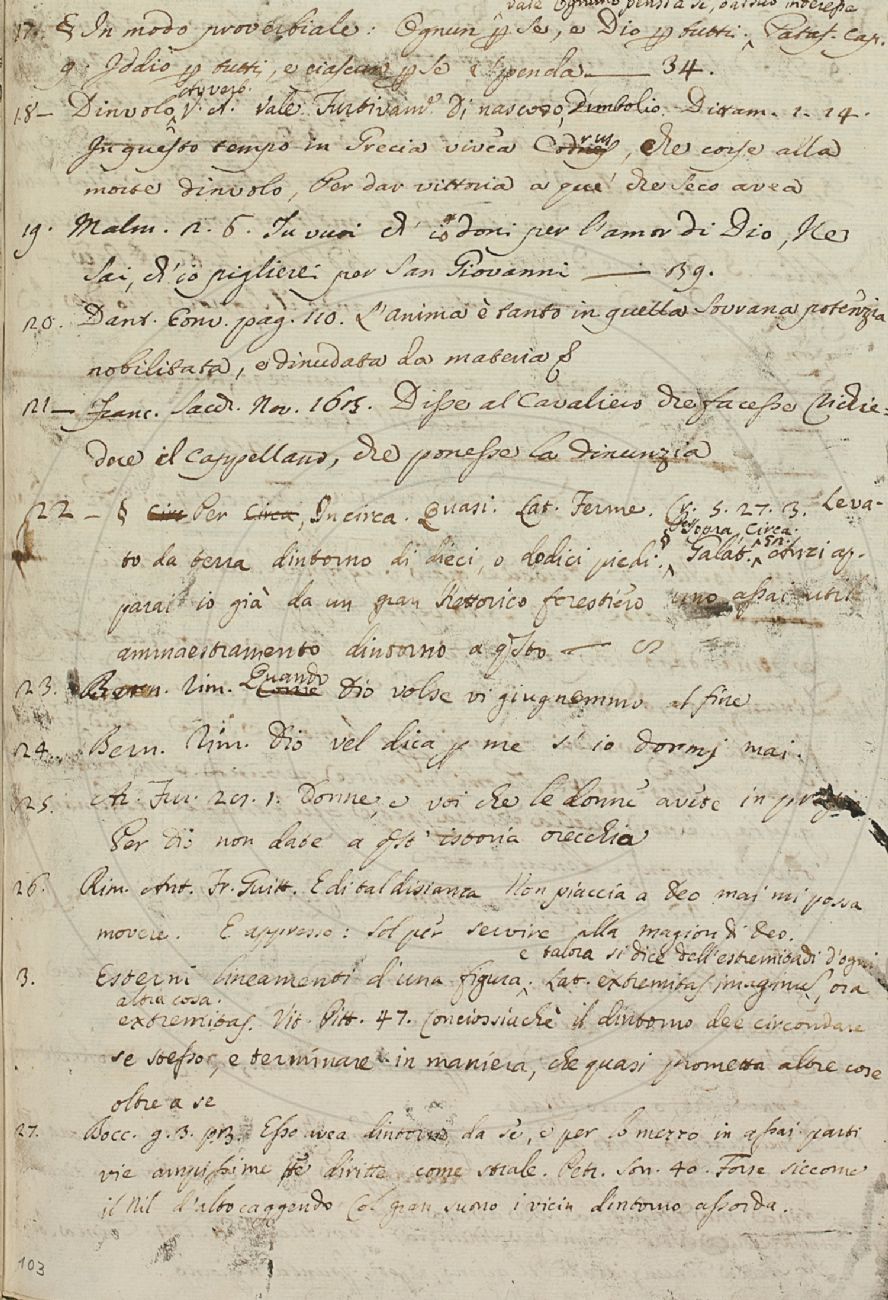 vale Ognuno pensa a se, o al suo interesse
17. § In modo proverbiale: Ognun p se, e Dio p tutti. Pataf. cap.
9. Iddio p tutti, e ciascun p se spenda — 34.
18 — Dinvolo, V. A. vale Furtivam.e Di nascoso, Dimbolio. Dittam. 1. 14.
In questo tempo in Grecia vivea Codrus, che corse alla
morte dinvolo, Per dar vittoria a que' che seco avea
19. Malm. 2. 6. Tu vuoi ch' io doni per l'amor di Dio, Ne
sai, ch'io piglierei per San Giovanni — 39.
20. Dant. Conv. pag. 110. L'anima è tanto in quella sovrana potenzia
nobilitata, e dinudata da materia
21 — Franc. Sacch. Nov. 163. Disse al Cavaliero che facesse
dere il Cappellano, che ponesse la dinunzia
22 — § Per Circa, Incirca. Quasi. Lat. Ferme. 5. 27. 3. Leva-
§ Sopra, Circa.
to da terra dintorno di dieci, o dodici piedi. Galat. 52. Anzi ap-
parai io già da un gran Rettorico forestiero uno assai util
ammaestramento dintorno a q.sto —
23. Bern. Rim. Quando Dio volse vi giugnemmo al fine
24. Bern. Rim. Dio vel dica p me s' io dormj mai.
25. Ar. Fur. 1. Donne, e voi che le donne avete in
Per Dio non date a q.st' istoria orecchia
26. Rim. Ant. Fr. Guitt. E di tal disianza Non piaccia a Deo mai mi possa
movere. E appresso: Sol per servire alla magion di Deo.
e talora si dice dell'estremità di d'ogni
3. Esterni lineamenti d'una figura. Lat. extremitas imaginis, ora
altra cosa.
extremitas. Vit. Pitt. 47. Conciossiachè il dintorno dee circondare
se stesso, e terminare in maniera, che quasi prometta altre cose
oltre a se
27. Bocc. g. 3. pr. Esso avea dintorno da se, e per lo mezzo in assai parti
vie ampissime diritte come strale. Petr. Son. 40. Forse siccome
il Nil d'alto caggendo Col gran suono i vicin dintorno assorda.
103